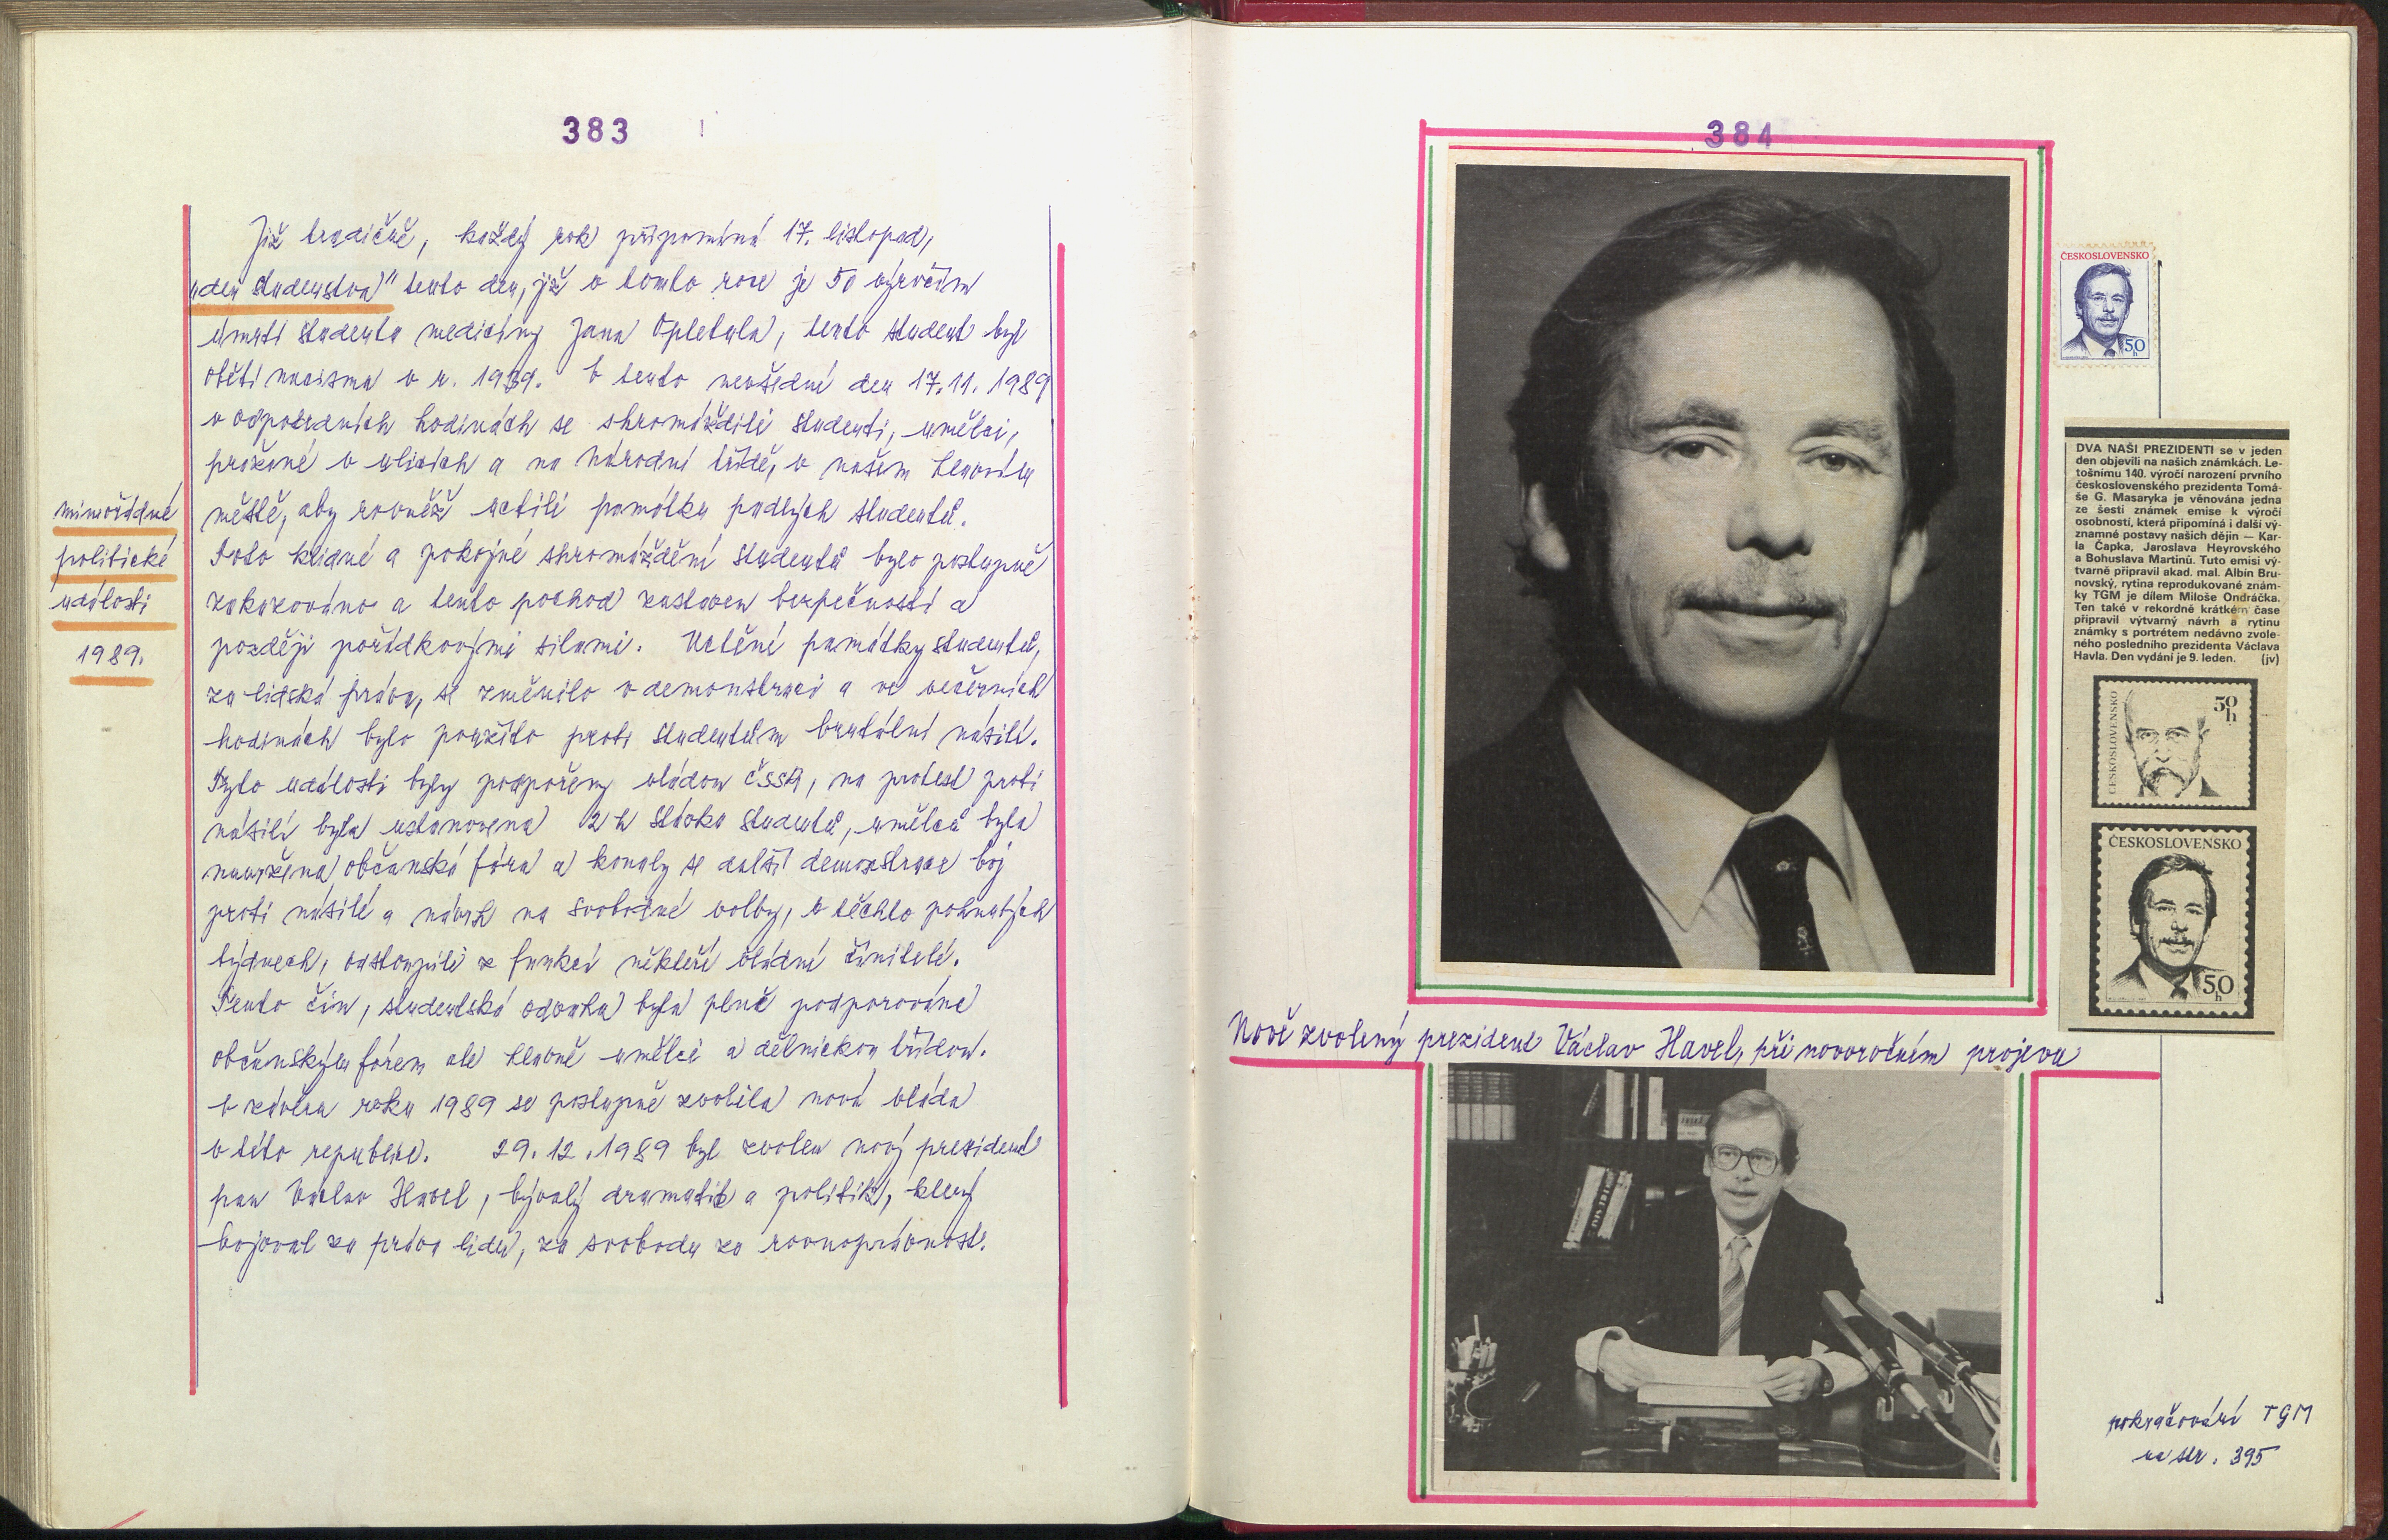 383
Již tradičně, každý rok připomíná 17. listopad,
„den studentstva" tento den, již v tomto roce je 50 výročím
úmrtí studenta medicíny Jana Opletala, tento student byl
obětí nacismu v r. 1939. V tento nevšední den 17.11.1989
v odpoledních hodinách se shromáždili studenti, umělci,
pražané v ulicích a na Národní třídě, v našem hlavním
městě, aby rovněž uctili památku padlých studentů.
Toto klidné a pokojné shromáždění studentů bylo postupně
zakazováno a tento pochod zastaven bezpečností a
později pořádkovými silami. Uctění památky studentů,
za lidská práva, se změnilo v demonstraci a ve večerních
hodinách bylo použito proti studentům brutální násilí.
Tyto události byly podpořeny vládou ČSSR, na protest proti
násilí byla ustanovena 2 h stávka studentů, umělců byla
občanská fóra a konaly se další demonstrace boj
proti násilí a návrh na svobodné volby, v těchto pohnutých
týdnech, odstoupili z funkcí někteří vládní činitelé.
Tento čin, studentská odvaha byla plně podporována
občanským fórem ale hlavně umělci a dělnickou třídou.
V závěru roku 1989 se postupně zvolila nová vláda
v této republice. 29.12.1989 byl zvolen nový president
pan Václav Havel, bývalý dramatik a politik, který
bojoval za práva lidu, za svobodu za rovnoprávnost.
mimořádné
politické
události
1989.
384
ČESKOSLOVENSKO
50
h
DVA NAŠI PREZIDENTI se v jeden
den objevili na našich známkách. Le-
tošnímu 140. výročí narození prvního
československého prezidenta Tomá-
še G. Masaryka je věnována jedna
ze šesti známek emise k výročí
osobností, která připomíná i další vý-
znamné postavy našich dějin — Kar-
la Čapka, Jaroslava Heyrovského
a Bohuslava Martinů. Tuto emisi vý-
tvarně připravil akad. mal. Albín Bru-
novský, rytina reprodukované znám-
ky TGM je dílem Miloše Ondráčka.
Ten také v rekordně krátkém čase
připravil výtvarný návrh a rytinu
známky s portrétem nedávno zvole-
ného posledního prezidenta Václava
Havla. Den vydání je 9. leden. (jv)
ČESKOSLOVENSKO
50
h
ČESKOSLOVENSKO
50
h
Nově zvolený prezident Václav Havel, při novoročním projevu
pokračování TGM
na str. 395